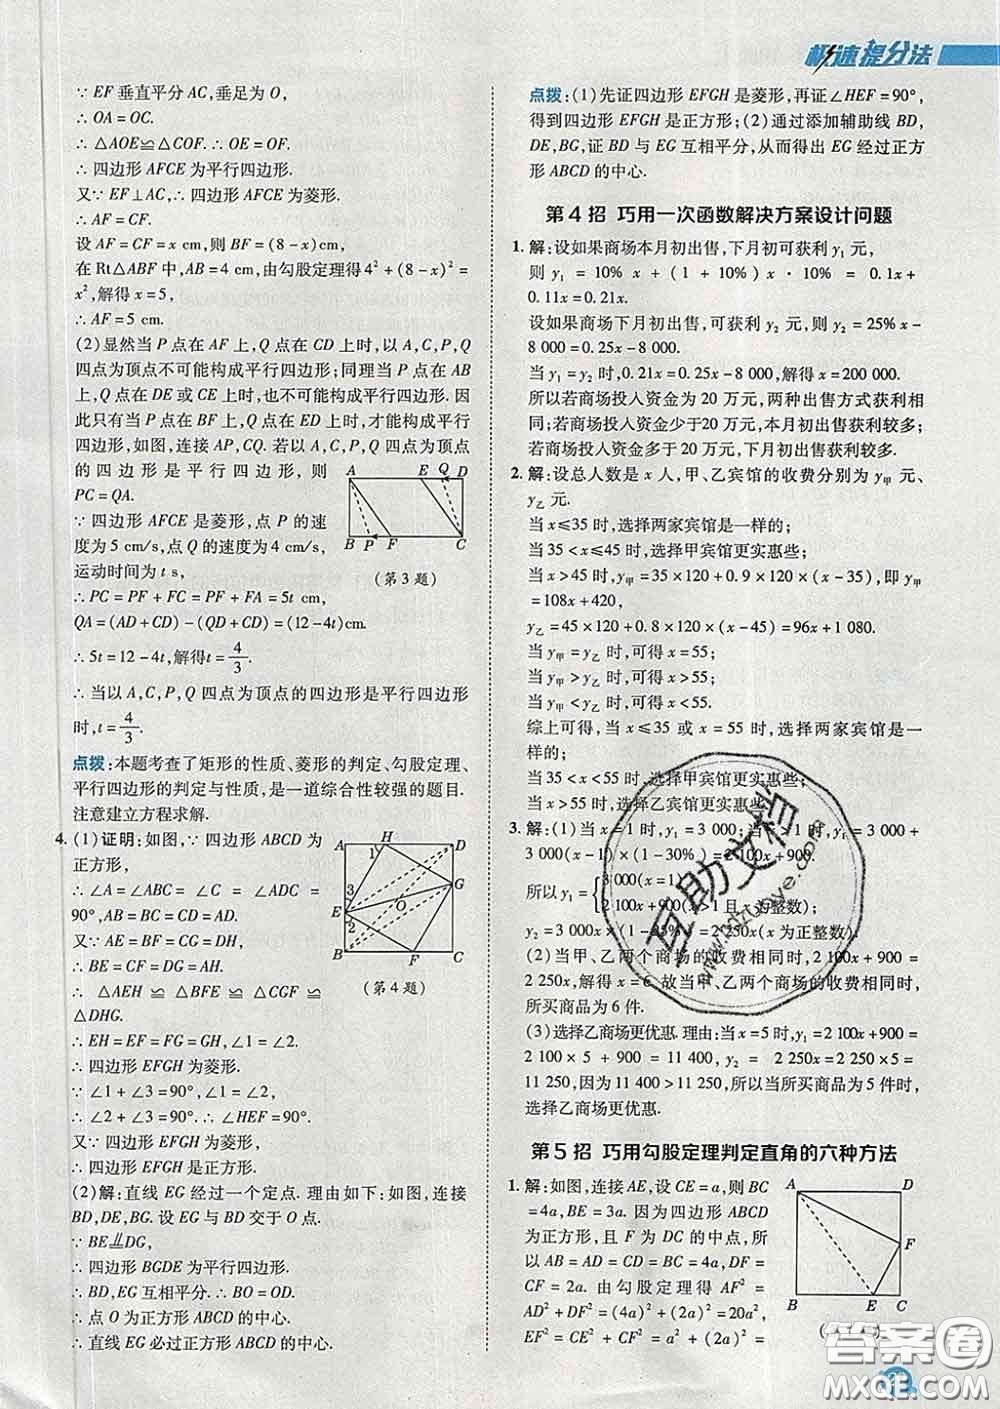 极速提分法
∵ EF 垂直平分 AC,垂足为 O,
∴ OA = OC.
∴ △AOE≌△COF. ∴ OE = OF.
∴ 四边形 AFCE 为平行四边形.
又∵ EF⊥AC,∴ 四边形 AFCE 为菱形.
∴ AF = CF.
设 AF = CF = x cm,则 BF = (8 - x) cm,
在 Rt△ABF 中,AB = 4 cm,由勾股定理得 4² + (8 - x)² =
x²,解得 x = 5,
∴ AF = 5 cm.
(2)显然当 P 点在 AF 上,Q 点在 CD 上时,以 A,C,P,Q
四点为顶点不可能构成平行四边形;同理当 P 点在 AB
上,Q 点在 DE 或 CE 上时,也不可能构成平行四边形. 因
此只有当 P 点在 BF 上,Q 点在 ED 上时,才能构成平行
四边形,如图,连接 AP,CQ. 若以 A,C,P,Q 四点为顶点
的四边形是平行四边形,则
PC = QA.
∵ 四边形 AFCE 是菱形,点 P 的速
度为 5 cm/s,点 Q 的速度为 4 cm/s,
运动时间为 t s,
A E Q D
B P F C
(第 3 题)
∴ PC = PF + FC = PF + FA = 5t cm,
QA = (AD + CD) - (QD + CD) = (12 - 4t)cm.
∴ 5t = 12 - 4t,解得 t = 4/3.
∴ 当以 A,C,P,Q 四点为顶点的四边形是平行四边形
时,t = 4/3.
点拨:本题考查了矩形的性质、菱形的判定、勾股定理、
平行四边形的判定与性质,是一道综合性较强的题目.
注意建立方程求解.
4. (1)证明:如图,∵ 四边形 ABCD 为
正方形,
∴ ∠A = ∠ABC = ∠C = ∠ADC =
90°,AB = BC = CD = AD.
又∵ AE = BF = CG = DH,
∴ BE = CF = DG = AH.
∴ △AEH ≌ △BFE ≌ △CGF ≌
△DHG.
A H D
1
3 G
E O
2
B F C
(第 4 题)
∴ EH = EF = FG = GH,∠1 = ∠2.
∴ 四边形 EFGH 为菱形.
∵ ∠1 + ∠3 = 90°,∠1 = ∠2,
∴ ∠2 + ∠3 = 90°. ∴ ∠HEF = 90°.
又∵ 四边形 EFGH 为菱形,
∴ 四边形 EFGH 是正方形.
(2)解:直线 EG 经过一个定点. 理由如下:如图,连接
BD,DE,BG. 设 EG 与 BD 交于 O 点.
∵ BE∥=DG,
∴ 四边形 BGDE 为平行四边形.
∴ BD,EG 互相平分. ∴ BO = OD.
∴ 点 O 为正方形 ABCD 的中心.
∴ 直线 EG 必过正方形 ABCD 的中心.
点拨:(1)先证四边形 EFGH 是菱形,再证∠HEF = 90°,
得到四边形 EFGH 是正方形;(2)通过添加辅助线 BD,
DE,BG,证 BD 与 EG 互相平分,从而得出 EG 经过正方
形 ABCD 的中心.
第 4 招 巧用一次函数解决方案设计问题
1. 解:设如果商场本月初出售,下月初可获利 y₁ 元,
则 y₁ = 10% x + (1 + 10%) x · 10% = 0.1x +
0.11x = 0.21x.
设如果商场下月初出售,可获利 y₂ 元,则 y₂ = 25% x -
8 000 = 0.25x - 8 000.
当 y₁ = y₂ 时,0.21x = 0.25x - 8 000,解得 x = 200 000.
所以若商场投入资金为 20 万元,两种出售方式获利相
同;若商场投入资金少于 20 万元,本月初出售获利较多;
若商场投入资金多于 20 万元,下月初出售获利较多.
2. 解:设总人数是 x 人,甲、乙宾馆的收费分别为 y甲 元、
y乙 元.
当 x≤35 时,选择两家宾馆是一样的;
当 35 < x≤45 时,选择甲宾馆更实惠些;
当 x > 45 时,y甲 = 35 × 120 + 0.9 × 120 × (x - 35),即 y甲
= 108x + 420,
y乙 = 45 × 120 + 0.8 × 120 × (x - 45) = 96x + 1 080.
当 y甲 = y乙 时,可得 x = 55;
当 y甲 > y乙 时,可得 x > 55;
当 y甲 < y乙 时,可得 x < 55.
综上可得,当 x≤35 或 x = 55 时,选择两家宾馆是一
样的;
当 35 < x < 55 时,选择甲宾馆更实惠些;
当 x > 55 时,选择乙宾馆更实惠些.
3. 解:(1)当 x = 1 时,y₁ = 3 000;当 x > 1 时,y₁ = 3 000 +
3 000(x - 1) × (1 - 30%) = 2 100x + 900.
所以 y₁ = { 3 000(x = 1),
2 100x + 900(x > 1 且 x 为整数).
y₂ = 3 000x(1 - 25%) = 2 250x(x 为正整数).
(2)当甲、乙两个商场的收费相同时,2 100x + 900 =
2 250x,解得 x = 6. 故当甲、乙两个商场的收费相同时,
所买商品为 6 件.
(3)选择乙商场更优惠. 理由:当 x = 5 时,y₁ = 2 100x + 900 =
2 100 × 5 + 900 = 11 400,y₂ = 2 250x = 2 250 × 5 =
11 250,因为 11 400 > 11 250,所以当所买商品为 5 件时,
选择乙商场更优惠.
第 5 招 巧用勾股定理判定直角的六种方法
1. 解:如图,连接 AE,设 CE = a,则 BC
= 4a,BE = 3a. 因为四边形 ABCD
为正方形,且 F 为 DC 的中点,所
以 AB = AD = CD = BC = 4a,DF =
CF = 2a. 由勾股定理得 AF² =
AD² + DF² = (4a)² + (2a)² = 20a²,
EF² = CE² + CF² = a² + (2a)² =
A D
F
B E C
互助文档
答案圈
MXQE.COM